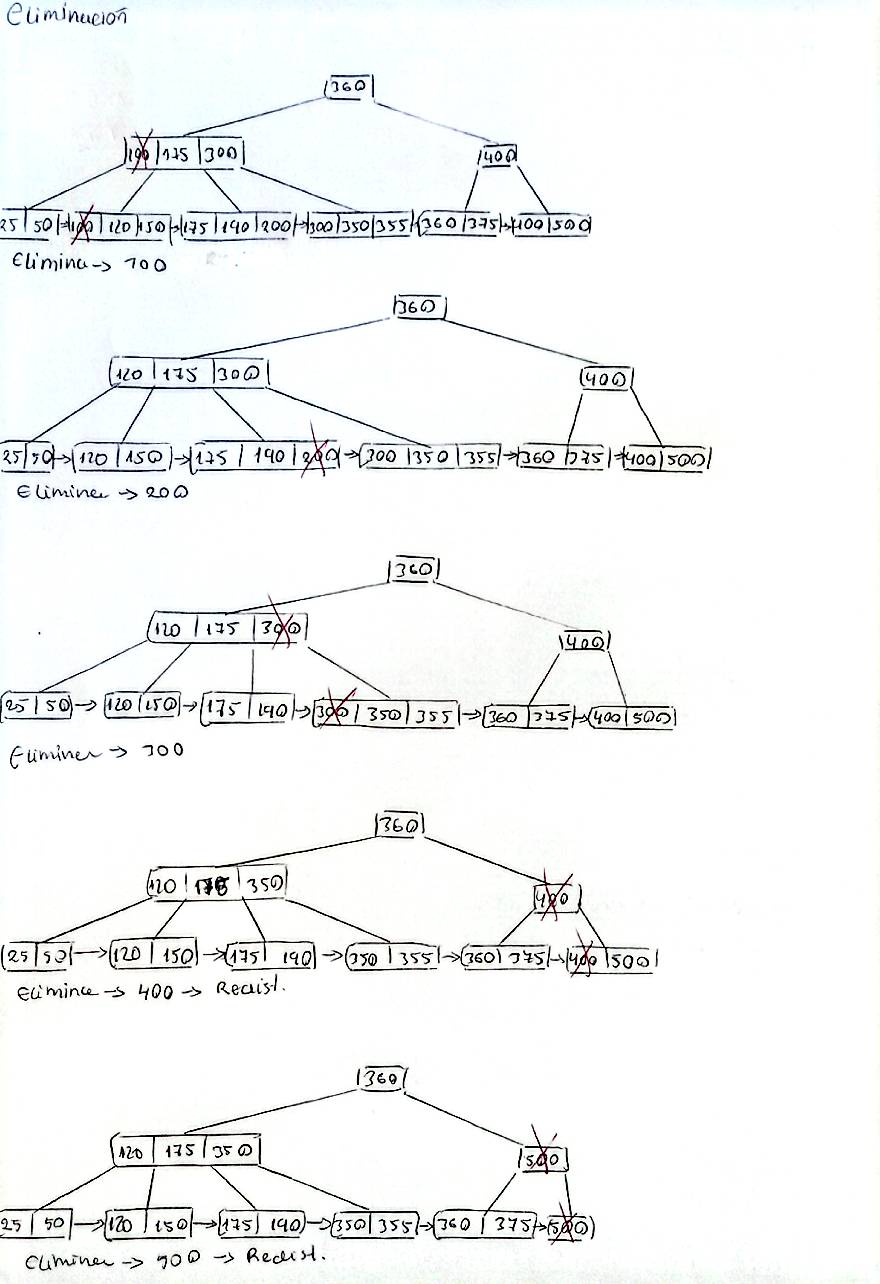 Eliminación
|360|
|100|175|300|
|400|
25|50|→|100|120|150|→|175|190|200|→|300|350|355|→|360|375|→|400|500|
Elimina → 100
|360|
|120|175|300|
|400|
25|50|→|120|150|→|175|190|200|→|300|350|355|→|360|375|→|400|500|
Eliminar → 200
|360|
|120|175|300|
|400|
|25|50|→|120|150|→|175|190|→|300|350|355|→|360|375|→|400|500|
Eliminar → 300
|360|
|120|175|350|
|400|
|25|50|→|120|150|→|175|190|→|350|355|→|360|375|→|400|500|
Elimina → 400 → Redist.
|360|
|120|175|350|
|500|
25|50|→|120|150|→|175|190|→|350|355|→|360|375|→|500|
Eliminar → 500 → Redist.